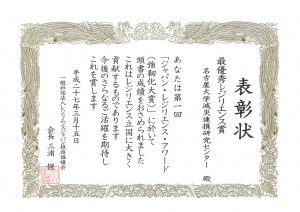 表彰状
最優秀レジリエンス賞
名古屋大学減災連携研究センター 殿
あなたは第一回
「ジャパン・レジリエンス・アワード
(強靭化大賞)」に於いて
頭書の成績をおさめられました
これはレジリエンス立国に大きく
貢献するものであります
今後のさらなるご活躍を期待し
これを賞します
平成二十七年三月十五日
一般社団法人レジリエンスジャパン推進協議会
会長 三浦 惺